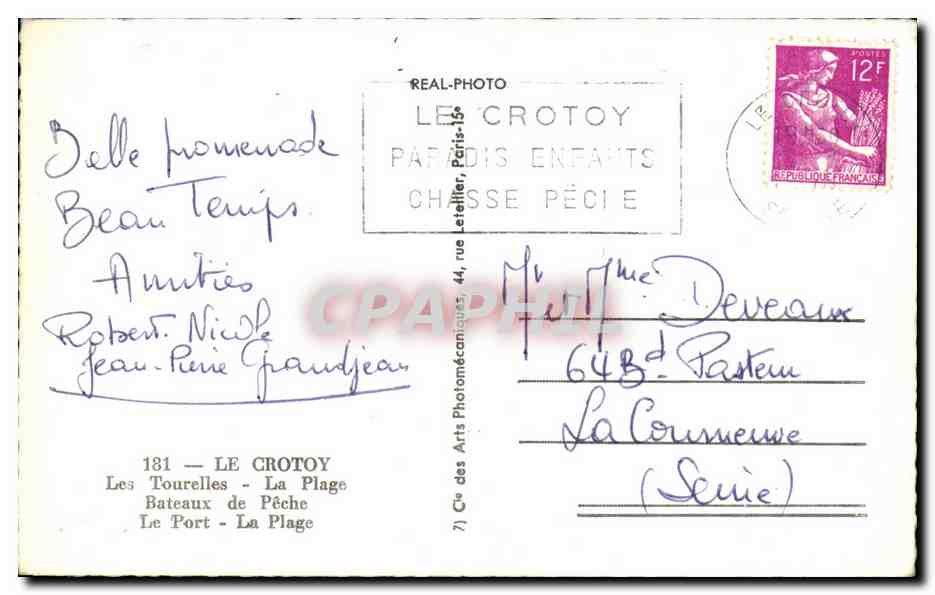 Belle promenade
Beau Temps
Amitiés
Robert Nicole
Jean-Pierre Grandjean
181 — LE CROTOY
Les Tourelles - La Plage
Bateaux de Pêche
Le Port - La Plage
REAL-PHOTO
LE CROTOY
PARADIS ENFANTS
CHASSE PÊCHE
7) Cie des Arts Photomécaniques, 44, rue Letellier, Paris-15e
POSTES
12F
REPUBLIQUE FRANÇAISE
Mr et Mme Deveaux
64 Bd. Pasteur
La Courneuve
(Seine)
CPAPHIL